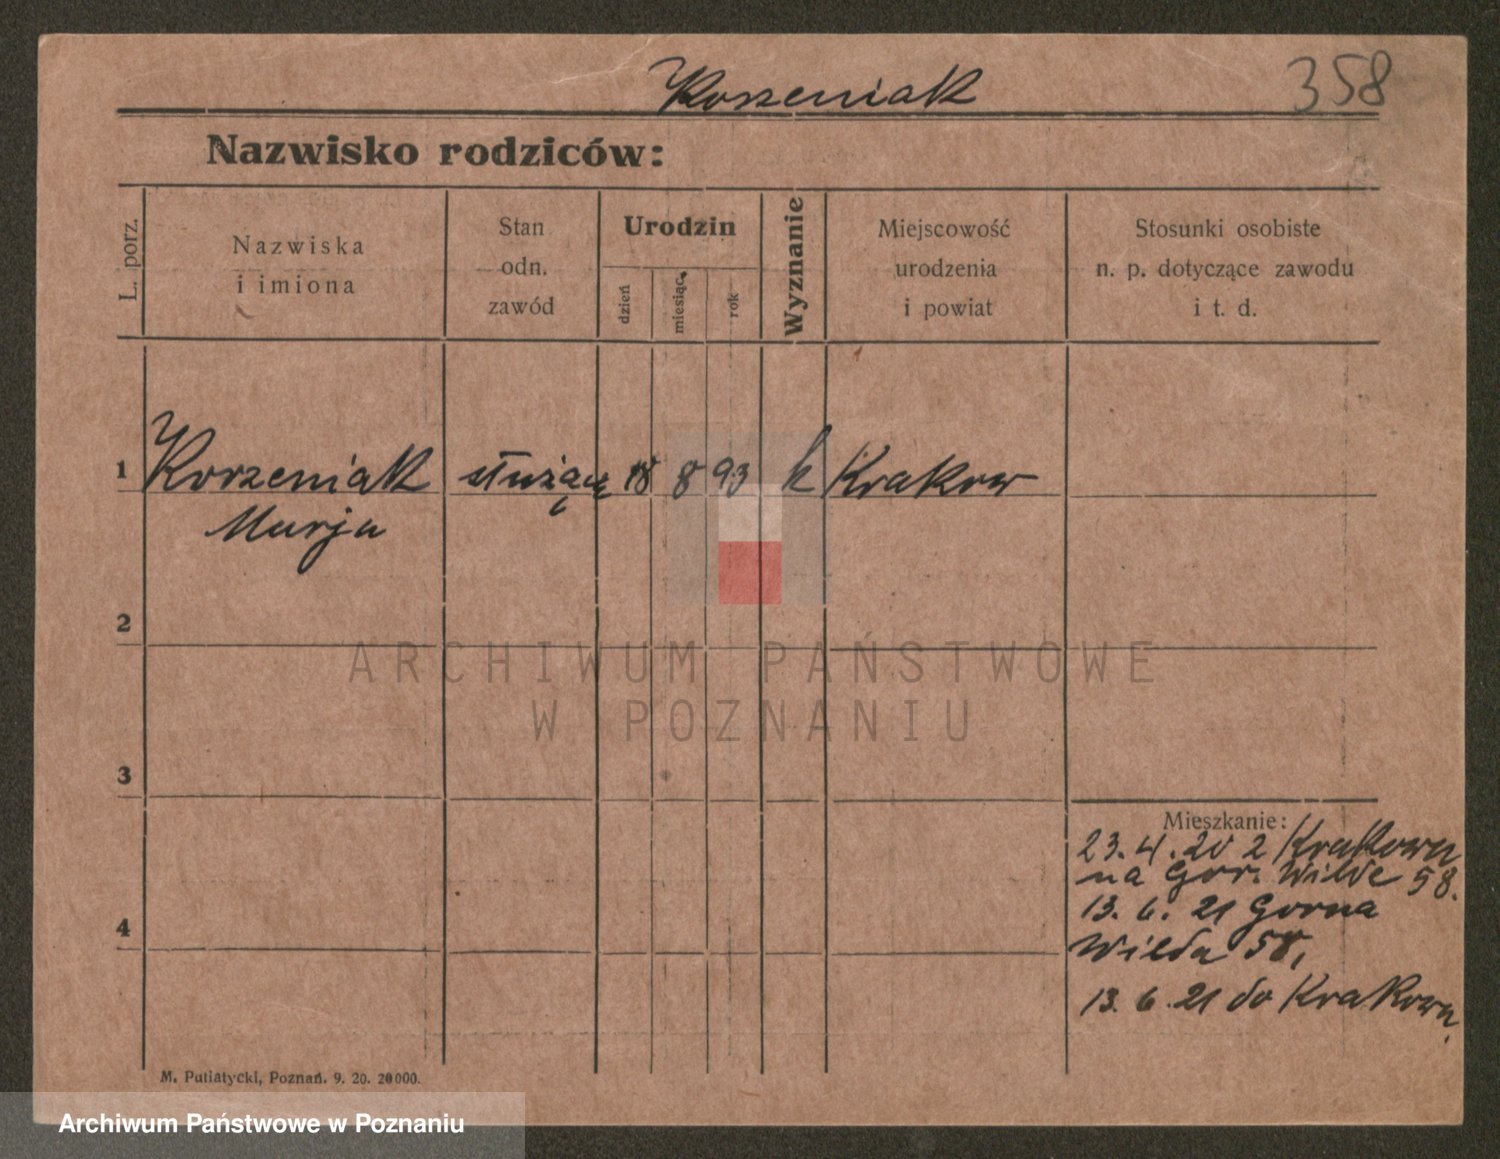 Korzeniak 358
Nazwisko rodziców:
L. porz.
Nazwiska
i imiona
Stan
odn.
zawód
Urodzin
dzień
miesiąc
rok
Wyznanie
Miejscowość
urodzenia
i powiat
Stosunki osobiste
n. p. dotyczące zawodu
i t. d.
1 Korzeniak służąca 18 8 93 k Krakow
Marja
2
3
4
Mieszkanie:
23. 4. 20 z Krakowa
na Gor. Wilde 58.
13. 6. 21 Gorna
Wilda 58,
13. 6. 21 do Krakowa.
M. Putiatycki, Poznań. 9. 20. 20000.
ARCHIWUM PAŃSTWOWE
W POZNANIU
Archiwum Państwowe w Poznaniu